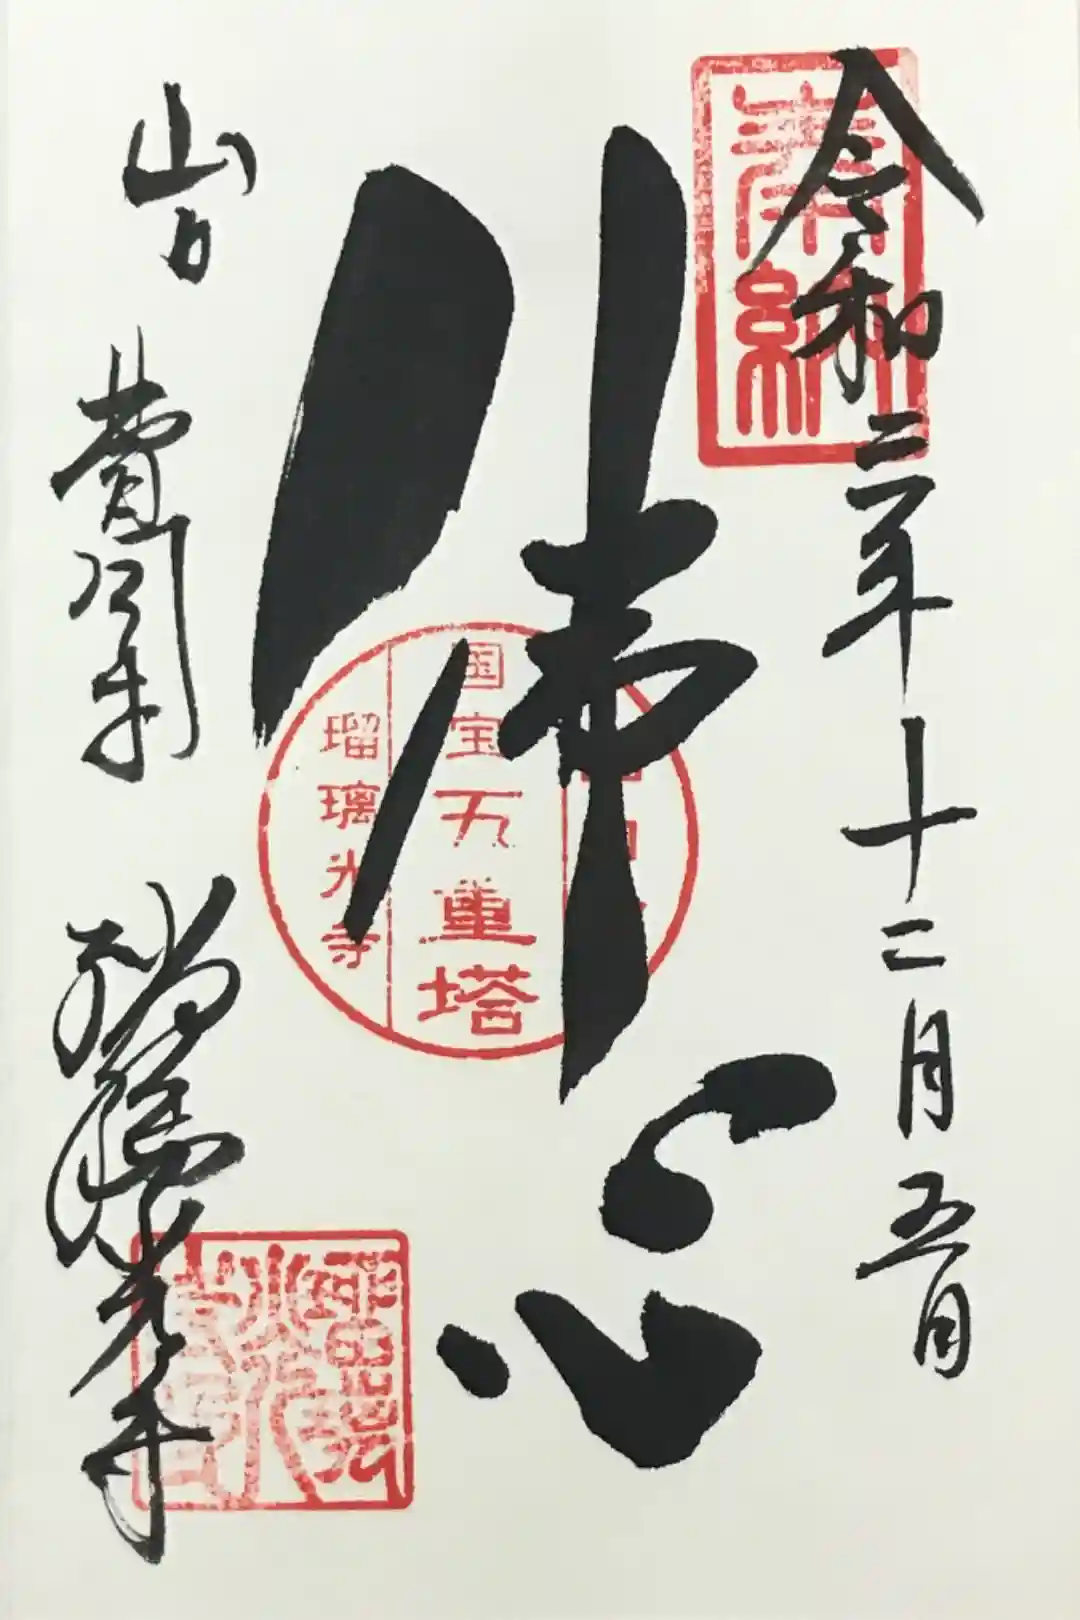 奉納
令和二年十二月五日
佛心
国宝
五重塔
瑠璃光寺
山口
瑠璃光寺